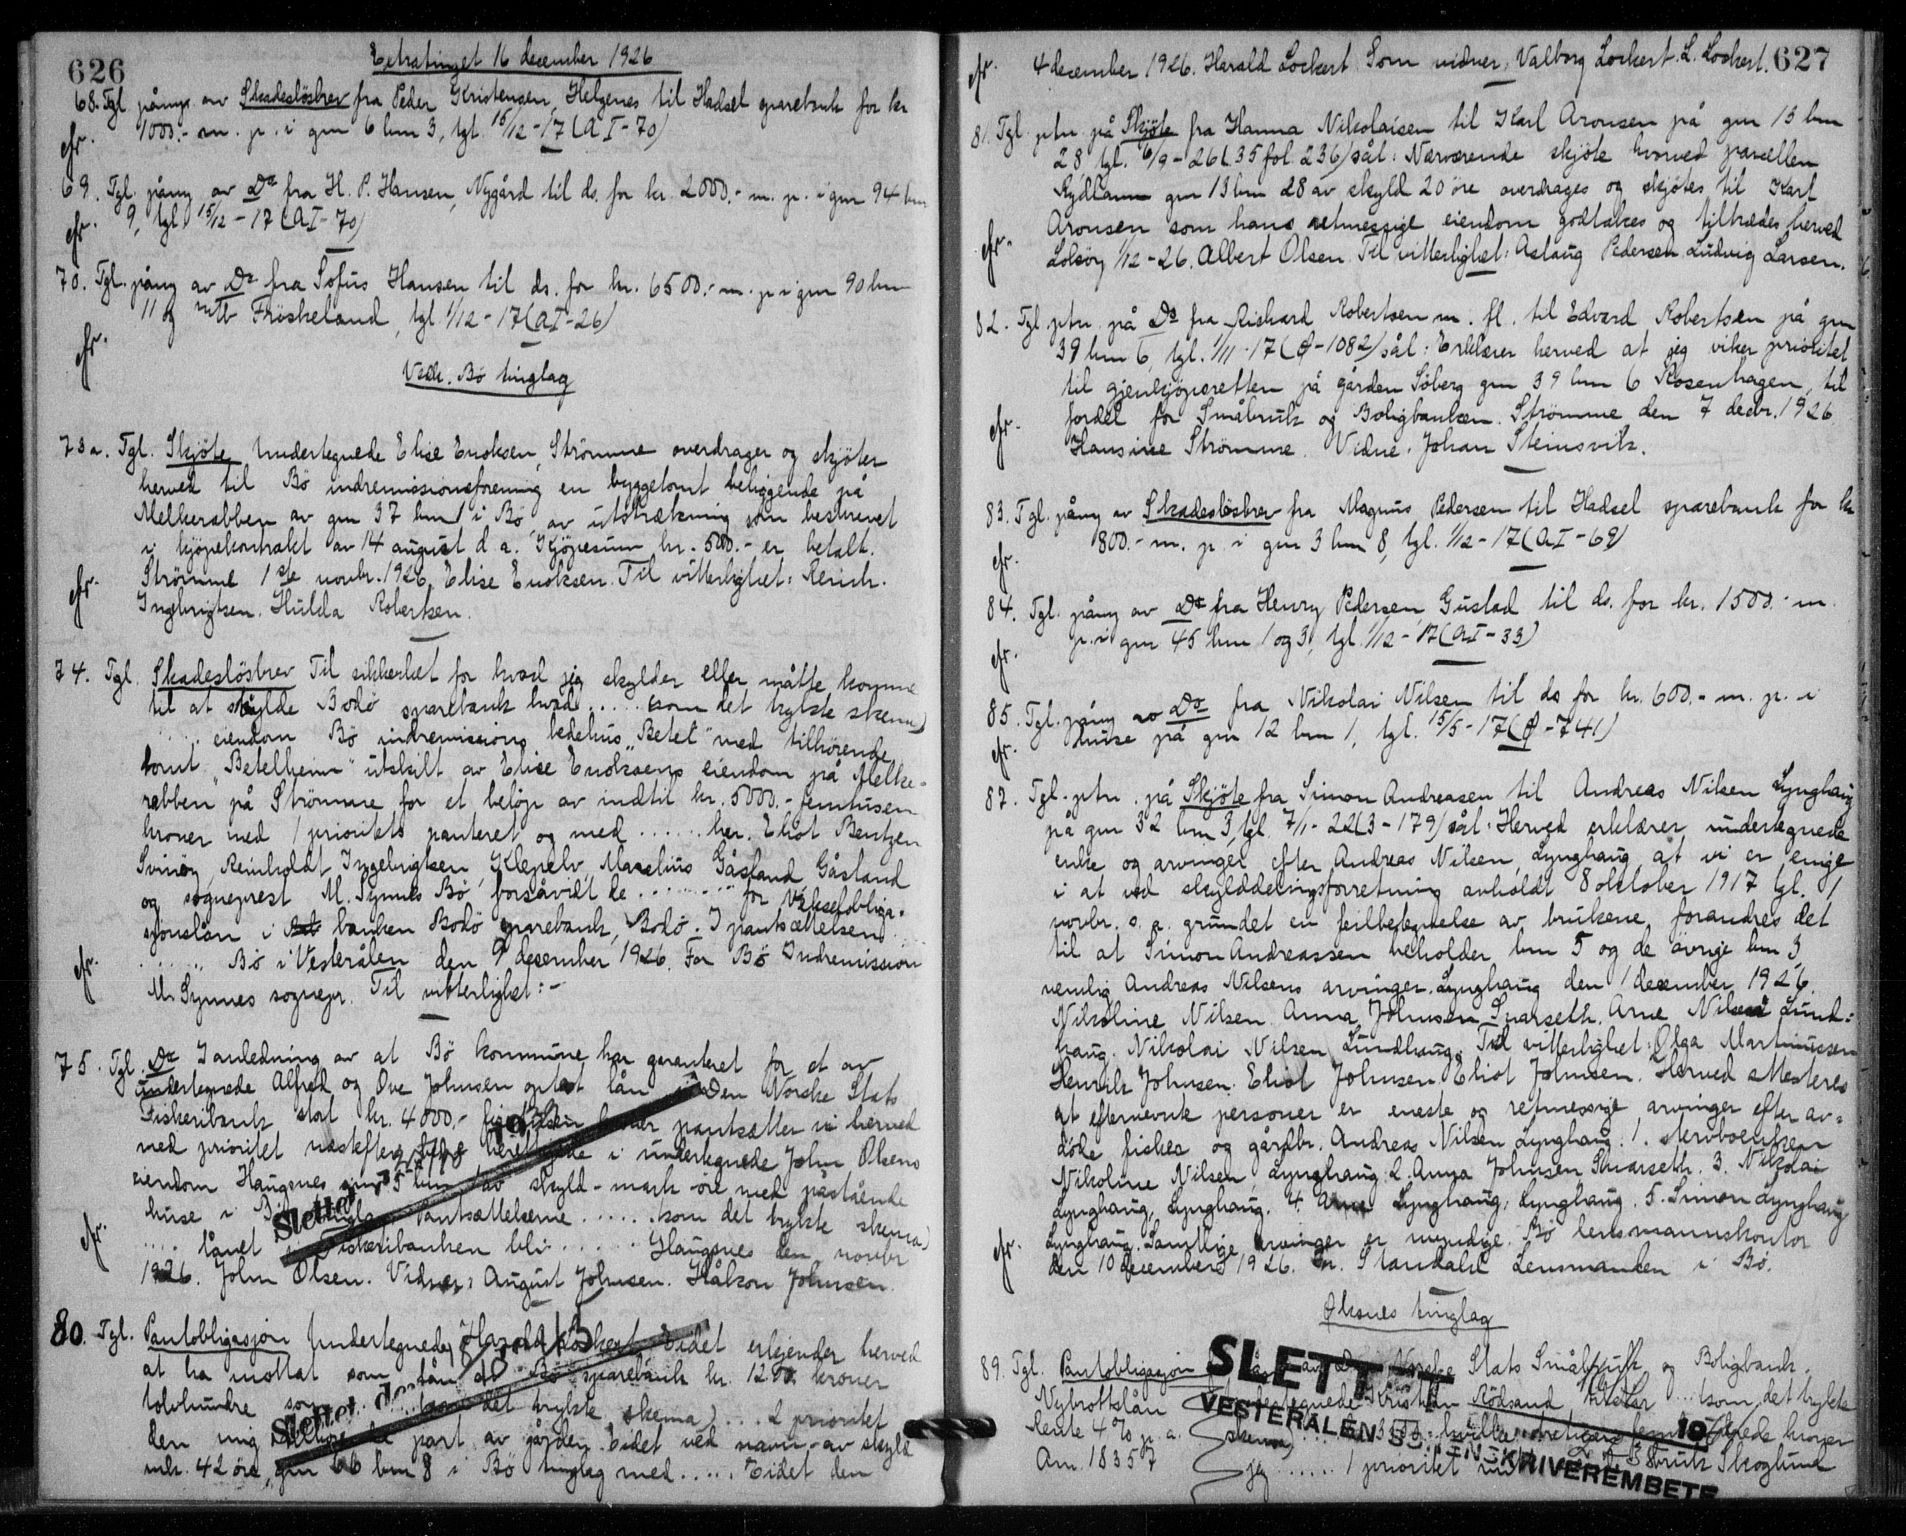 626
Extratinget 16 december 1926
68. Tgl. påny av Skadesløsbrev fra Peder Kristensen, Helgenes til Hadsel sparebank for kr
1000.- m. p. i gnr 6 bnr 3, tgl. 15/12-17 (AI-70)
cfr.
69. Tgl. påny av Do fra H. P. Hansen, Nygård til ds. for kr. 2000.- m. p. i gnr 94 bnr
9, tgl. 15/12-17 (AI-70)
cfr.
70. Tgl. påny av Do fra Sofus Hansen til ds. for kr. 6500.- m. p. i gnr 90 bnr
11 og Frøskeland, tgl 1/12-17 (AI-26)
cfr.
Vedk. Bø tinglag
73a. Tgl. Skjøte Undertegnede Elise Enoksen, Strømme overdrager og skjøter
herved til Bø indremissionsforening en byggetomt beliggende på
Melkerabben av gnr 37 bnr 1 i Bø, av utstrækning som beskrevet
i kjøpekontrakt av 14 august d. a. Kjøpesum kr. 500.- er betalt.
Strømme 1ste novbr. 1926, Elise Enoksen. Til vitterlighet: Reinh.
cfr. Ingebrigtsen. Hulda Robertsen.
74. Tgl. Skadesløsbrev Til sikkerhet for hvad jeg skylder eller måtte komme
til at skylde Bodø sparebank hvad ..... (som det trykte skema)
..... eiendom Bø indremissions bedehus "Betel" med tilhørende
tomt "Betelheim" utskilt av Elise Enoksens eiendom på Melke-
rabben på Strømme for et beløp av indtil kr. 5000.- femtusen
kroner med 1 prioritets panteret og med ...... hr. Eliot Bentzen
Svinøy, Reinholdt Ingebrigtsen, Klepelv, Marelius Gåsland Gåsland
og sogneprest M. Synnes Bø forsåvidt de ......... for Vekselobliga-
sjonslån i banken Bodø sparebank, Bodø. I pantsættelsen ....
..... Bø i Vesterålen den 9 desember 1926. For Bø Indremission
cfr. M. Synnes sognepr. Til vitterlighet: -
75. Tgl. Do I anledning av at Bø kommune har garanteret for et av
undertegnede Alfred og Ove Johnsen optat lån i Den Norske Stats
Fiskeribank stort kr. 4000.- pantsætter vi herved
med prioritet næstefter i undertegnede John Olsens
eiendom Haugsnes gnr 5 bnr av skyld - mark - øre med påstående
huse i Bø tinglag. Pantsættelsene ...... (som det trykte skema)
..... lånet i Fiskeribanken bli ...... Haugsnes den novbr
cfr. 1926. John Olsen. Vidner: August Johnsen. Håkon Johnsen.
Slettet 19
80. Tgl. Pantobligasjon Undertegnede Harald Lockert Eidet erkjender herved
at ha mottat som lån av Bø sparebank kr. 1200 kroner
tolvhundre som (som det trykte skema) .... 2 prioritet
den mig tilhørende part av gården Eidet ved navn - av skyld
mk. 42 øre, gnr 66 bnr 8 i Bø tinglag med ..... Eidet den
Slettet den
627
cfr. 4 december 1926. Harald Lockert. Som vidner: Valborg Lockert. L. Lockert.
81. Tgl. ptn. på Skjøte fra Hanna Nikolaisen til Karl Aronsen på gnr 13 bnr
28 tgl. 6/9-26 (35 fol 236) sål: Nærværende skjøte hvorved parcellen
gnr 13 bnr 28 av skyld 20 øre overdrages og skjøtes til Karl
Aronsen som hans retmessige eiendom godtakes og tiltrædes herved
cfr. 1/12-26. Albert Olsen. Til vitterlighet: Aslaug Pedersen Ludvig Larsen.
82. Tgl. ptn. på Do fra Richard Robertsen m. fl. til Edvard Robertsen på gnr
39 bnr 6, tgl. 1/11-17 (Ø-1082) sål: Erklærer herved at jeg viker prioritet
til gjenkjøpsretten på gården Søberg gnr 39 bnr 6 Rosenhagen, til
fordel for Småbruk og Boligbanken. Strømme den 7 decbr. 1926
cfr. Hansine Strømme. Vidne: Johan Steinsvik.
83. Tgl. påny av Skadesløsbrev fra Magnus Pedersen til Hadsel sparebank for kr
800.- m. p. i gnr 3 bnr 8, tgl. 1/12-17 (AI-69)
cfr.
84. Tgl. påny av Do fra Henry Pedersen, Gustad til ds. for kr. 1500.- m.
p. i gnr 45 bnr 1 og 3, tgl. 1/12-17 (AI-33)
cfr.
85. Tgl. påny av Do fra Nikolai Nilsen til ds for kr. 600.- m. p. i
huse på gnr 12 bnr 1, tgl. 15/5-17 (Ø-741)
cfr.
87. Tgl. ptn. på Skjøte fra Simon Andreasen til Andreas Nilsen Lynghaug
på gnr 32 bnr 3, tgl. 7/11-22 (3-179) sål: Herved erklærer undertegnede
enke og arvinger efter Andreas Nilsen, Lynghaug at vi er enige
i at ved skylddelingsforretning avholdt 8 oktober 1917 tgl. 1
novbr. s. a. grundet en feilbetegnelse av brukene, forandres det
til at Simon Andreassen beholder bnr 5 og de øvrige bnr 3,
nemlig Andreas Nilsens arvinger. Lynghaug den 1 december 1926.
Nikoline Nilsen. Anna Johnsen Snarseth. Arne Nilsen Lund-
haug. Nikolai Nilsen Lundhaug. Til vitterlighet: Olga Martinussen
Henrik Johnsen. Eliot Johnsen. Eliot Johnsen. Herved attesteres
at efternevnte personer er eneste og retmessige arvinger efter av-
døde fisker og gårdbr. Andreas Nilsen Lynghaug. 1. stervboenken
Nikoline Nilsen, Lynghaug. 2. Anna Johnsen Snarseth. 3. Nikolai
Lynghaug, Lynghaug. 4. Arne Lynghaug, Lynghaug. 5. Simon Lynghaug
Lynghaug. Samtlige arvinger er myndige. Bø lensmannskontor
cfr. den 10 december 1926. Standahl Lensmanden i Bø.
Øksnes tinglag
89. Tgl. Pantobligasjon Lån av Den Norske Stats Småbruk og Boligbank.
Nybrottslån Undertegnede Kristian Rødsand ... (som det trykte
Rente 4% p. a. skema) kroner
Anr. 18357 jeg ...... 1 prioritet bruk Skoglund
SLETTET
19
VESTERÅLEN SORENSKRIVEREMBETE